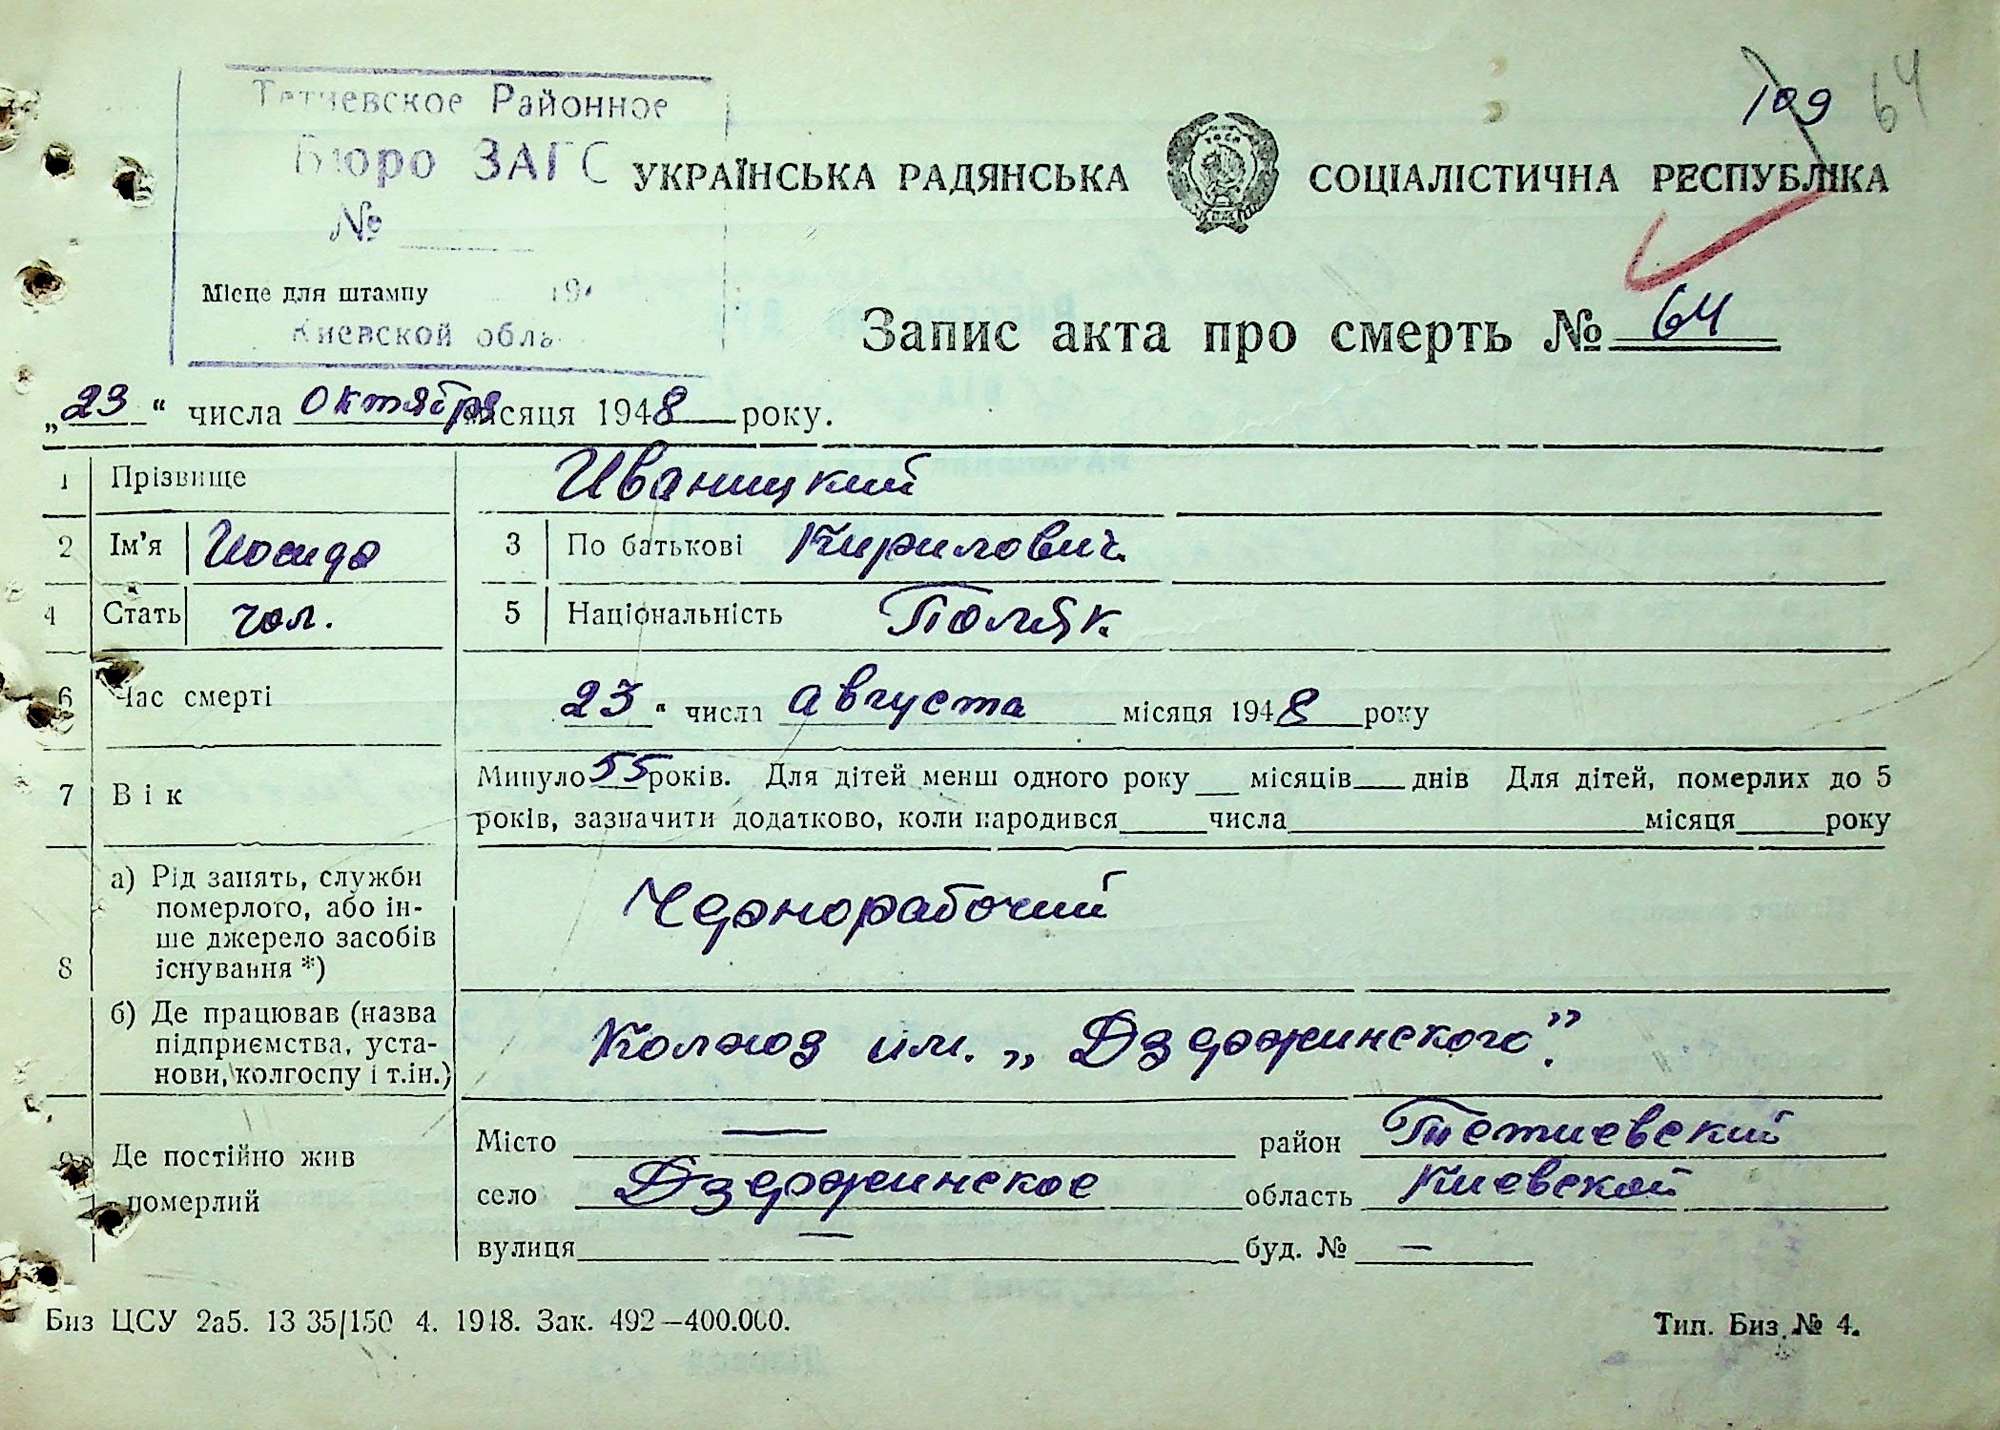 Тетиевское Районное
Бюро ЗАГС
№
Місце для штампу 19
Киевской обла
109 64
УКРАЇНСЬКА РАДЯНСЬКА СОЦІАЛІСТИЧНА РЕСПУБЛІКА
Запис акта про смерть № 64
„23“ числа октября місяця 1948 року.
1 Прізвище Иваницкий
2 Ім’я Иосидо 3 По батькові Кирилович
4 Стать чол. 5 Національність Поляк.
6 Час смерті 23“ числа августа місяця 1948 року
7 Вік Минуло 55 років. Для дітей менш одного року місяців днів Для дітей, померлих до 5
років, зазначити додатково, коли народився числа місяця року
8 а) Рід занять, служби
померлого, або ін-
ше джерело засобів
існування *)
Чернорабочий
б) Де працював (назва
підприємства, уста-
нови, колгоспу і т.ін.)
Колхоз им. „Дзержинского”.
9 Де постійно жив
померлий
Місто — район Тетиевский
село Дзержинское область Киевской
вулиця — буд. № —
Биз ЦСУ 2а5. 13 35/150 4. 1948. Зак. 492—400.000.
Тип. Биз. № 4.